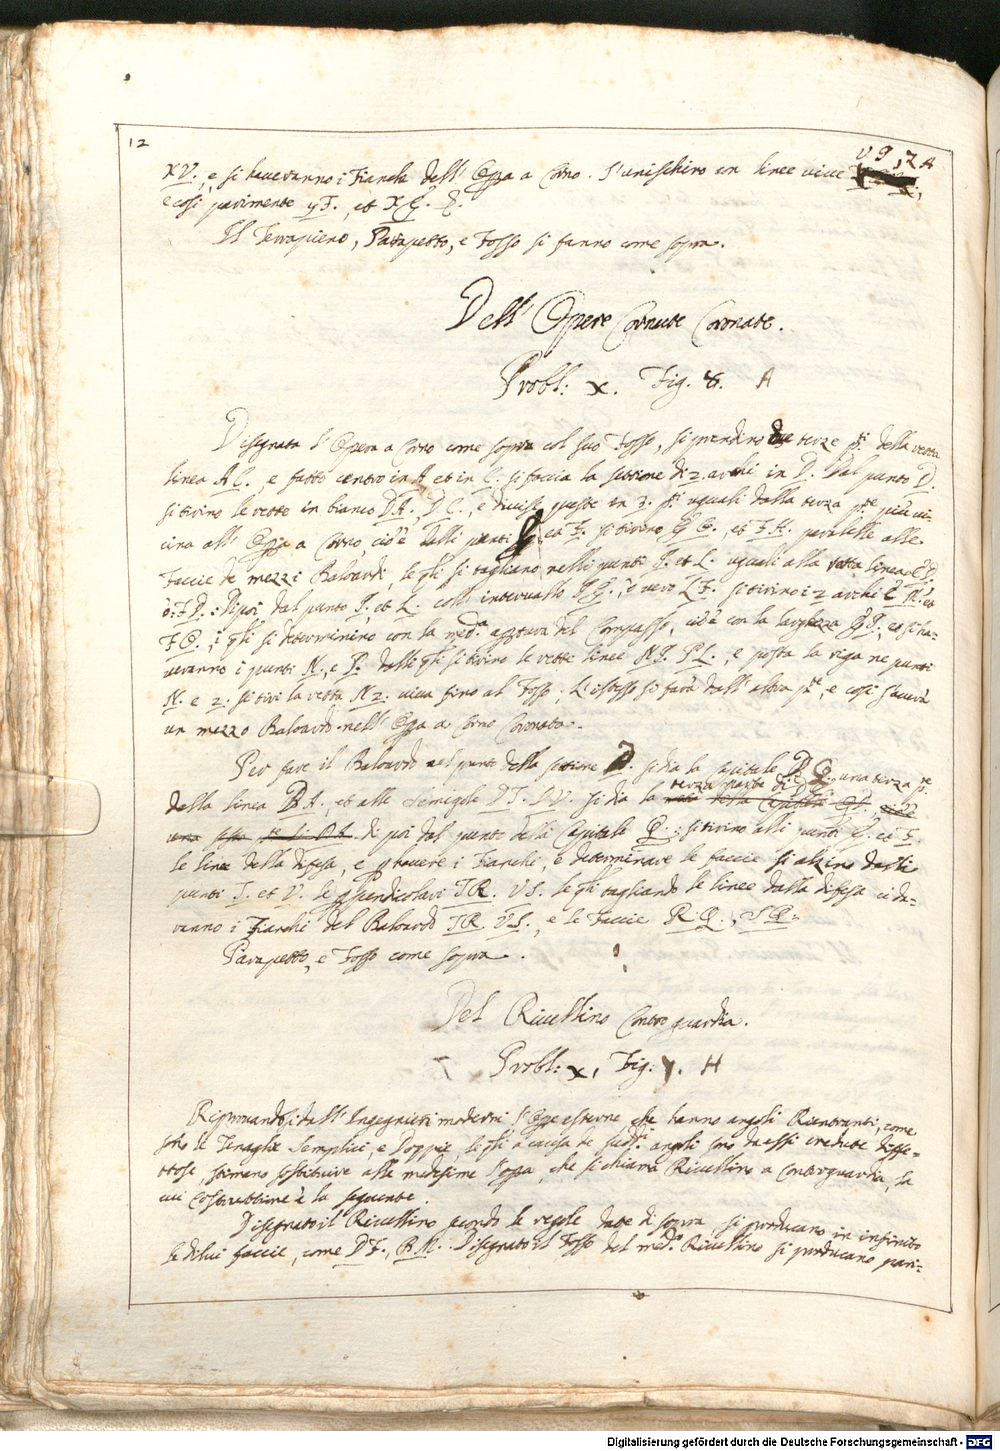 12
XV. e si haveranno i Fianchi dell' Opa a Corno. S'unischino con linee vive V 9, Z A
e così parimente y F. et X G.
Il Terrapieno, Parapetto, e Fosso si fanno come sopra.
Dell' Opere Cornute Coronate.
Probl: X. Fig. 8. A
Disegnata l'Opera a Corno come sopra col suo Fosso, si prendino due terze pti della retta
linea A C. e fatto centro in A et in C. si faccia la settione di 2. archi in D. Dal punto D.
si tirino le rette in bianco D A, D C., e divise queste in 3. pti uguali dalla terza pte più vi=
cina all' Opa a Corno, cioè dalli punti et F. si tirino G C., et F A. paralelle alle
Faccie de mezzi Baloardi, le qli si tagliano nelli punti I. et L. uguali alla retta linea
ò F D.: Dipoi dal punto I. et L. coll' intervallo I G., ò vero L F. si tirino i 2 archi G N. et
F O., i qli si determinino con la meda apptura del Compasso, cioè con la larghezza et si ha=
veranno i punti N. e P. dalli qli si tirino le rette linee N I. P L., e posta la riga ne punti
N. e 2. si tiri la retta N 2. viva fino al Fosso. L'istesso si farà dall' altra pte, e così s'averà
un mezzo Baloardo nell' Opa a Corno Coronata.
Per fare il Baloardo nel punto della settione D. si dia la capitale D Q. una terza pte
della linea D A., et alle Semigole D T. D V. si dia la terza parte di
di poi dal punto della Capitale Q.: si tirino alli punti G. et F.
le linee della difesa, e p havere i Fianchi, e determinare le faccie si alzino dalli
punti T. et V. le ppendicolari T R. V S. le qli tagliando le linee della difesa ci da=
ranno i Fianchi del Baloardo T R. V S., e le Faccie R Q., S Q.
Parapetto, e Fosso come sopra.
Del Rivellino Contro guardia.
Probl: X, Fig: 7. H
Riprovandosi dall' Ingegnieri moderni l'Ope esterne, che hanno angoli Rientranti, come
sono le Tenaglie Semplici, e Doppie, le qli a causa de sudti angoli sono da essi credute diffe=
ttose, stimano sostituire alle medesime l'Opa, che si chiama Rivellino a Controguardia, la
cui Costruttione è la seguente.
Disegnato il Rivellino secondo le regole date di sopra, si producano in infinito
le di lui faccie, come D F., B M. Disegnato il Fosso del medo Rivellino si producano pari=
Digitalisierung gefördert durch die Deutsche Forschungsgemeinschaft - DFG